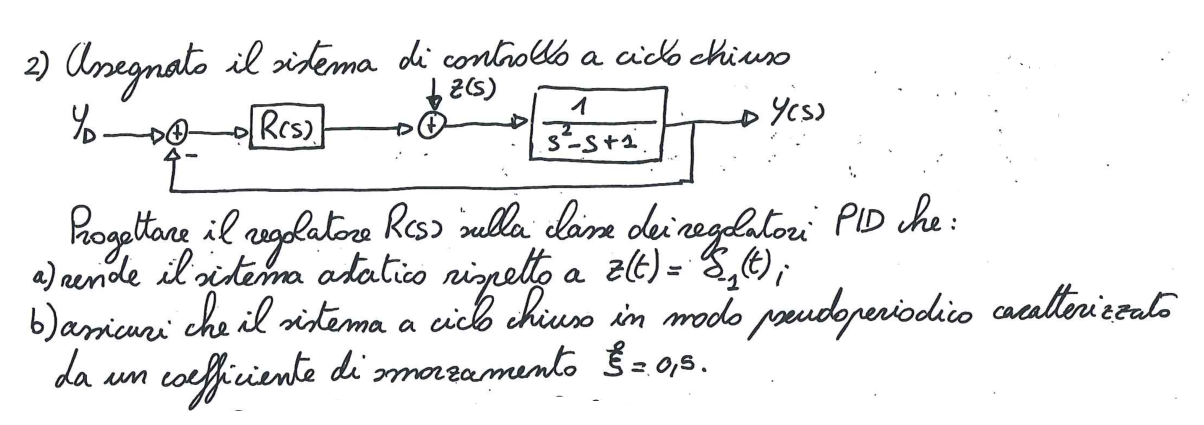 2) Assegnato il sistema di controllo a ciclo chiuso
Z(s)
Y_D R(s) 1 Y(s)
s²-s+1
Progettare il regolatore R(s) sulla classe dei regolatori PID che:
a) rende il sistema astatico rispetto a z(t) = δ₋₁(t);
b) assicuri che il sistema a ciclo chiuso in modo pseudoperiodico caratterizzato
da un coefficiente di smorzamento ξ = 0,5.